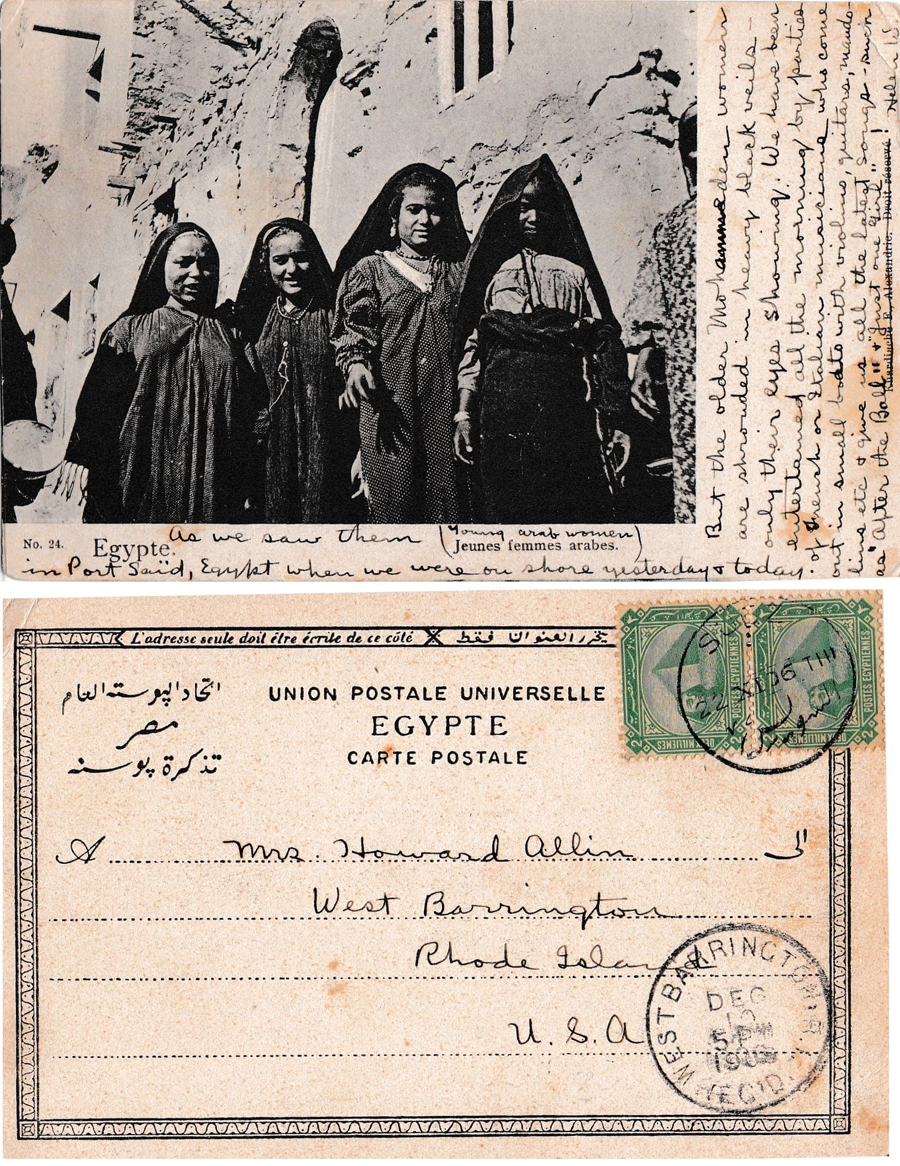 No. 24.
Egypte.
Jeunes femmes arabes.
As we saw them (Young arab women)
in Port Saïd, Egypt when we were on shore yesterday & today.
But the older Mohammeden women
are shrouded in heavy black veils -
only their eyes showing. We have been
entertained all the morning by parties
of French or Italian musicians who come
out in small boats with violins, guitars, mando-
lins etc & give us all the latest songs - such
as "After the Ball" & "Just one Girl"!
Helen B
Alexandrie. Droit réservé
L'adresse seule doit être écrite de ce côté
يحرر العنوان فقط
اتحاد البوسته العام
مصر
تذكرة بوسته
UNION POSTALE UNIVERSELLE
EGYPTE
CARTE POSTALE
POSTES EGYPTIENNES
DEUX MILLIEMES
POSTES EGYPTIENNES
DEUX MILLIEMES
22 XI 06 T III
السويس
A Mrs. Howard Allin الى
West Barrington
Rhode Island
U.S.A
WEST BARRINGTON R.I.
DEC
REC'D.